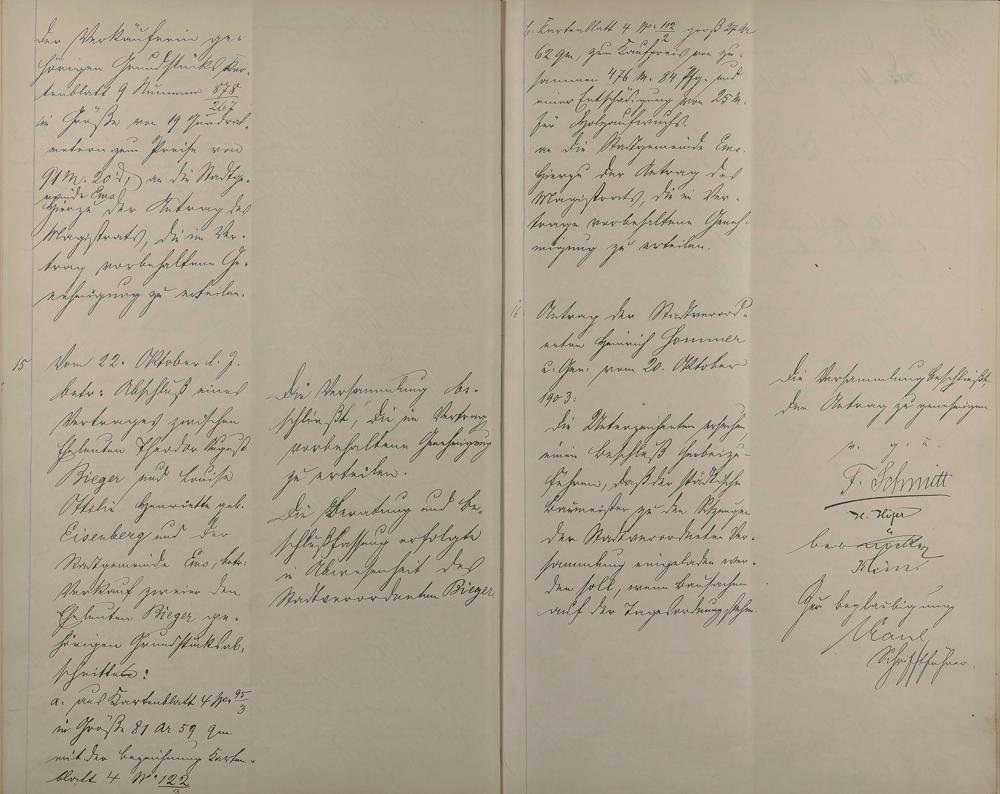 der Verkäuferin ge-
hörigen Grundstücks Kar-
tenblatt 9 Nummer 878/267
in Größe von 19 Quadrat-
metern zum Preise von
91 M. 20 d, an die Stadtge-
meinde Ems
Hierzu der Antrag des
Magistrats, die im Ver-
trag vorbehaltene Ge-
nehmigung zu erteilen.
15
Vom 22. Oktober d. J.
betr. Abschluß eines
Vertrages zwischen
Eheleuten Theodor August
Bieger und Louise
Ottilie Henriette geb.
Eisenberg und der
Stadtgemeinde Ems, betr.
Verkauf zweier den
Eheleuten Bieger ge-
hörigen Grundstücksab-
schnitte:
a. aus Kartenblatt 4 No. 95/3
in Größe 81 Ar 59 qm
mit der Bezeichnung Karten-
blatt 4 No. 122/3
Die Versammlung be-
schließt, die im Vertrag
vorbehaltene Genehmigung
zu erteilen.
Die Beratung und Be-
schlußfassung erfolgte
in Abwesenheit des
Stadtverordneten Bieger.
b. Kartenblatt 4 No. 112/2 groß 27 Ar
62 qm, zum Kaufpreis von zu-
sammen 476 M. 84 Pfg. und
einer Entschädigung von 25 M.
für Holzaufwuchs.
an die Stadtgemeinde Ems.
Hierzu der Antrag des
Magistrats, die im Ver-
trage vorbehaltene Geneh-
migung zu erteilen.
16
Antrag der Stadtverord-
neten Heinrich Sommer
u. Gen. vom 20. Oktober
1903:
Die Unterzeichneten ersuchen
einen Beschluß herbeizu-
führen, daß der städtische
Baumeister zu den Sitzungen
der Stadtverordneten Ver-
sammlung eingeladen wer-
den soll, wenn Bausachen
auf der Tagesordnung stehn.
Die Versammlung beschließt,
den Antrag zu genehmigen
v. g. u.
F. Schmitt
Zur Beglaubigung
Schriftführer.